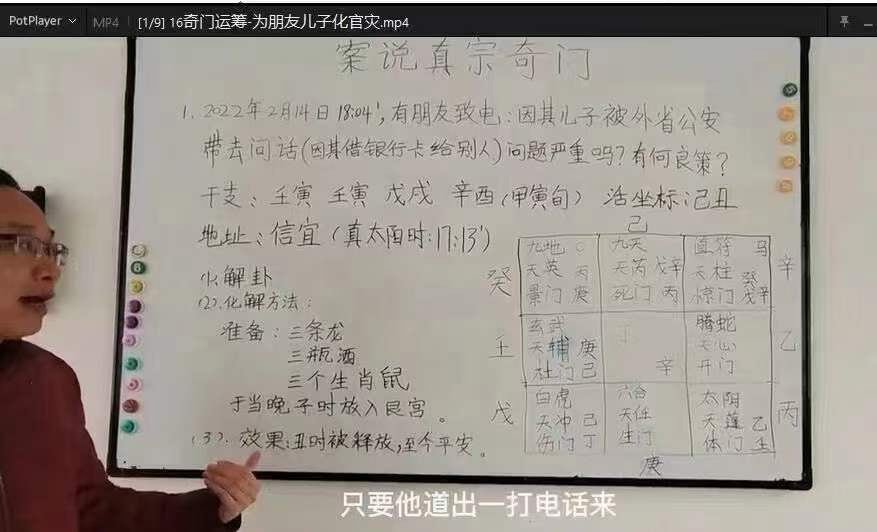 PotPlayer MP4 [1/9] 16奇门运筹-为朋友儿子化官灾.mp4
案说真宗奇门
1. 2022年2月14日 18:04', 有朋友致电:因其儿子被外省公安
带去问话(因其借银行卡给别人)问题严重吗?有何良策?
干支: 壬寅 壬寅 戊戌 辛酉 (甲寅旬) 活坐标:己丑
地址:信宜 (真太阳时:17:13')
化解卦
(2).化解方法:
准备:三条龙
三瓶酒
三个生肖鼠
于当晚子时放入艮宫。
(3).效果:丑时被释放,至今平安。
己
九地 九天 直符 马
癸 天英 丙 天芮 戊辛 天柱 癸 辛
景门 庚 死门 丙 惊门 戊辛
玄武 螣蛇
壬 天辅 庚 天心 乙
杜门 己 辛 开门
白虎 六合 太阴
戊 天冲 己 天任 天蓬 乙 丙
伤门 丁 生门 体门 壬
庚
只要他道出一打电话来